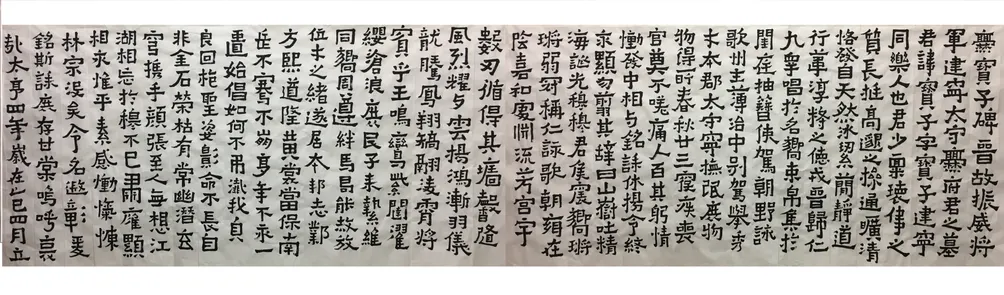 爨寶子碑晉故振威將
軍建寧太守爨府君之墓
君諱寶子字寶子建寧
同樂人也君少稟瓌偉之
質長挺高邈之操通曠清
恪發自天然冰絜簡靜道
行葦淳粹之德戎晉歸仁
九皋唱於名嚮束帛集於
閨庭抽簪俟駕朝野詠
歌州主簿治中別駕舉秀
才本郡太守寧撫氓庶物
物得所春秋廿三寢疾喪
官莫不嗟痛人百其躬情
慟發中相与銘誄休揚令終
永顯勿翦其辭曰山嶽吐精
海誕光穆穆君侯震嚮鏘
鏘弱冠稱仁詠歌朝鄉在
陰嘉和處淵流芳宮宇
數刃循得其墻馨隆
風烈耀与雲揚鴻漸羽儀
龍騰鳳翔矯翮凌霄將
賓乎王鳴鸞紫闥濯
纓滄浪庶民子來縶維
同嚮周遵絆馬曷能赦放
位才之緒遂居本邦志鄴
方熙道隆黃裳當保南
岳不騫不崩享年不永一
匱始倡如何不弔殲我貞
良回抱聖姿影命不長自
非金石榮枯有常幽潛玄
穹攜手顏張至人無想江
湖相忘於穆不已肅雍顯
相永惟平素感慟慷
林宗沒矣令名遐彰爰
銘斯誄庶存甘棠嗚呼哀
哉太亨四年歲在乙巳四月立